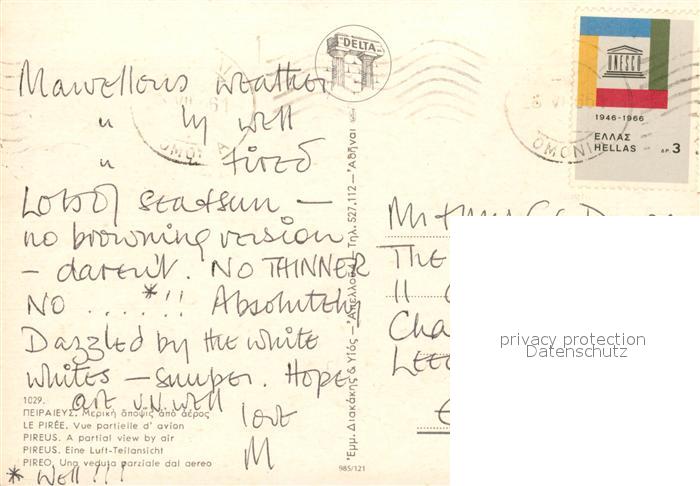 Marvellous weather
" ly well
" tired
Lots of sea & sun —
no browning version
— daren't. NO THINNER
NO ....*!! Absolutely
Dazzled by the white
whites — super. Hope
are v.v. well
love
M
* well!!!
1029.
ΠΕΙΡΑΙΕΥΣ. Μερική άποψις από αέρος
LE PIRÉE. Vue partielle d' avion
PIREUS. A partial view by air
PIREUS. Eine Luft-Teilansicht
PIREO. Una veduta parziale dal aereo
DELTA
Έμμ. Διακάκης & Υιός — Άπελλου — Τηλ. 527.112 — Άθήναι
985/121
UNESCO
1946-1966
ΕΛΛΑΣ
HELLAS ΔΡ. 3
OMONIA
Mr &
The
11
Cha
privacy protection
Datenschutz